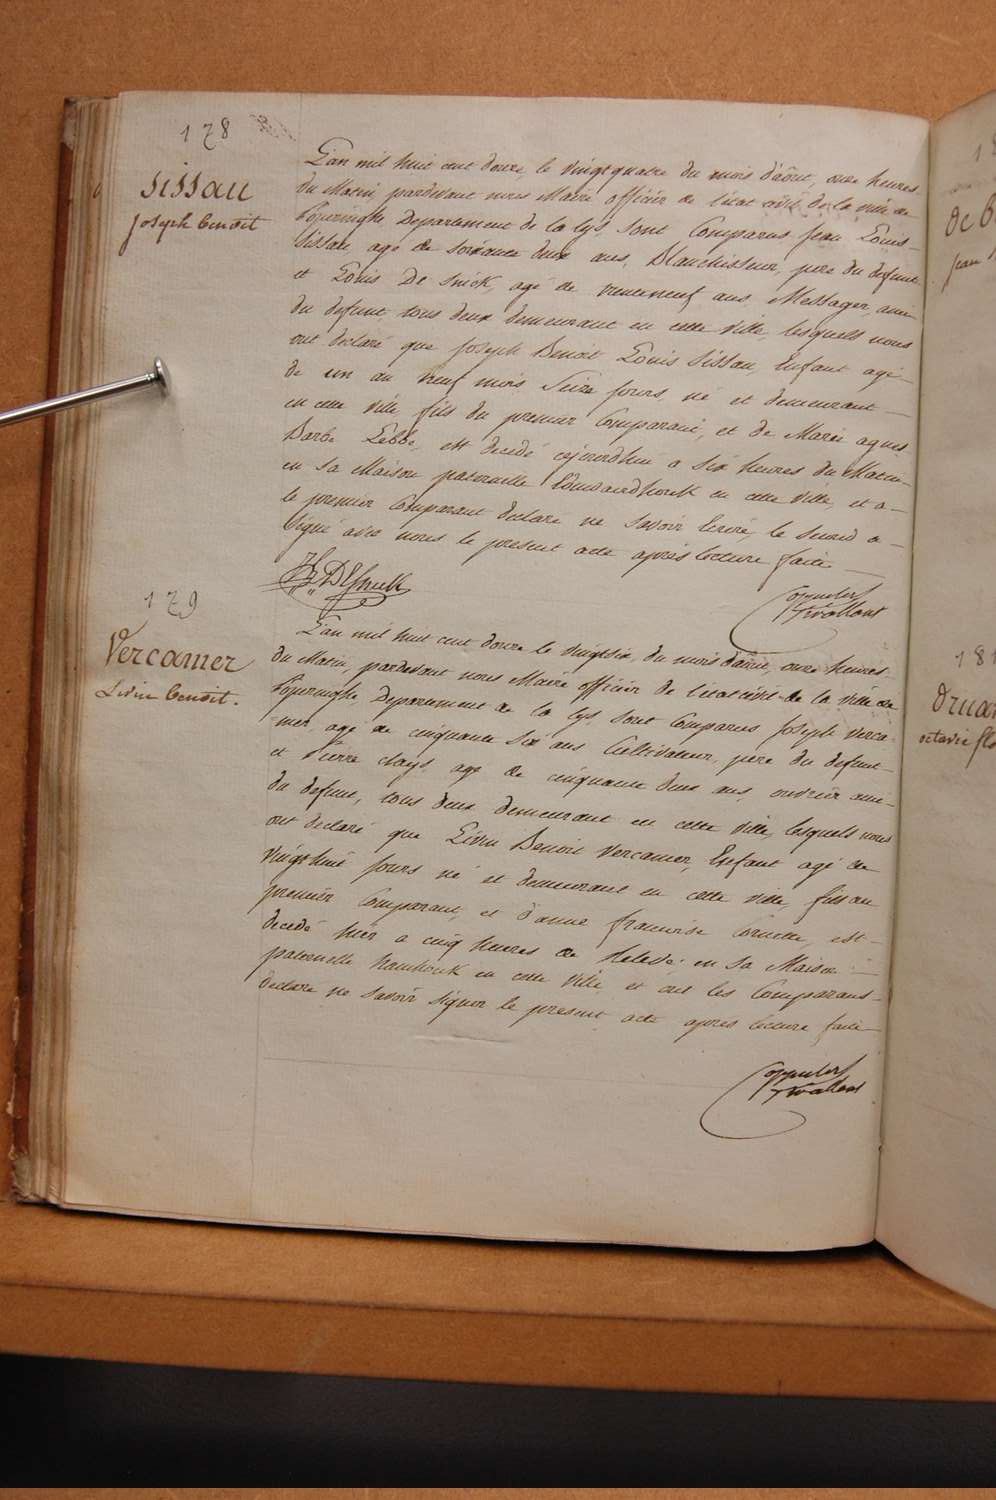 178
Sissau
Joseph benoit
L'an mil huit cent douze, le vingtquatre du mois d'août, onze heures
du Matin, pardevant nous Maire officier de l'état civil de la ville de
Poperinghe Departement de la Lys, sont Comparus Jean Louis
Sissau agé de soixante deux ans, Blanchisseur, pere du defunt
et Louis De Snick, agé de trenteneuf ans Messager, ami
du defunt, tous deux demeurant en cette ville, lesquels nous
ont declaré que Joseph Benoit Louis Sissau, Enfant agé
de un an neuf mois Seize jours, né et demeurant
en cette ville, fils du premier Comparant, et de Marie agnes
Barbe Lebbe, est decedé cejourdhui a six heures du Matin
en sa Maison paternelle en cette ville, et a
le premier Comparant declaré ne savoir Ecrire, le second a
signé avec nous le present acte après lecture faite
179
Vercamer
Livin benoit.
L'an mil huit cent douze le vingtsix du mois d'août, onze heures
du Matin, pardevant nous Maire officier de l'état civil de la ville de
Poperinghe, Departement de la Lys, sont Comparus Joseph Verca-
mer, agé de cinquante six ans Cultivateur, pere du defunt
et Pierre Clays, agé de cinquante deux ans, ouvrier ami
du defunt, tous deux demeurant en cette ville, lesquels nous
ont declaré que Livin Benoit Vercamer, Enfant agé de
vingthuit jours né et demeurant en cette ville, fils du
premier Comparant, et d'anne françoise Cornette, est
decedé hier a cinq heures de Relevée en sa Maison
paternelle en cette ville, et ont les Comparans
declaré ne savoir signer le present acte après lecture faite